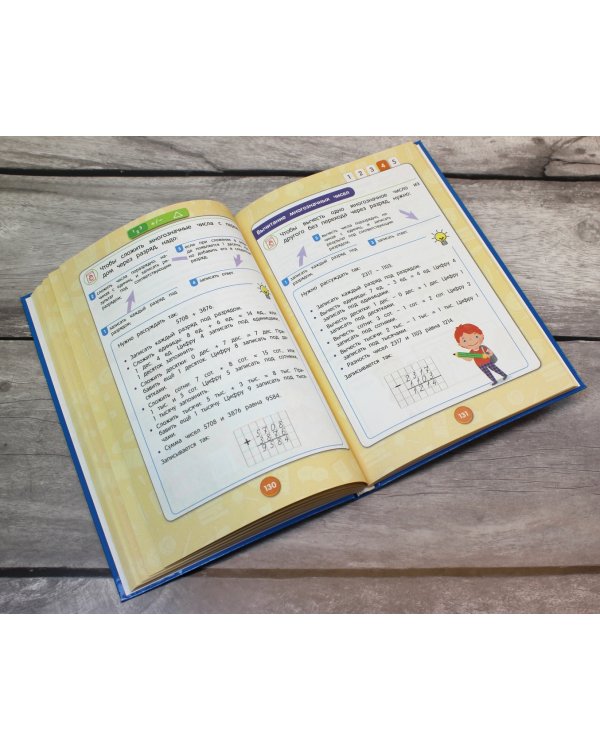 чтобы сложить многозначные числа с
дом через разряд надо:
каждый разряд под
разрядом;
записать ответ.
Нужно рассуждать так:
5708 + 3876.
• Записать каждый разряд под разрядом.
• Сложить единицы: 8 ед + 6 ед = 14 ед, или
1 дес 4 ед. Цифру 4 записать под единицами,
1 десяток запомнить.
• Сложить десятки: 0 дес + 7 дес = 7 дес. При-
бавить ещё 1 десяток. Цифру 8 записать под де-
сятками.
• Сложить сотни: 7 сот. + 8 сот. = 15 сот., или
1 тыс и 5 сот. Цифру 5 записать под сотнями,
1 тысячу запомнить.
• Сложить тысячи: 5 тыс. + 3 тыс. = 8 тыс. При-
бавить ещё 1 тысячу. Цифру 9 записать под тыся-
чами.
• Сумма чисел 5708 и 3876 равна 9584.
Записывается так:
5708
+ 3876
9584
130
1 2 3 4 5
Вычитание многозначных чисел
чтобы вычесть одно многозначное число из
другого без перехода через разряд, нужно:
записать каждый разряд под
разрядом;
записать ответ.
Нужно рассуждать так:
2317 – 1103.
• Записать каждый разряд под разрядом.
• Вычесть единицы: 7 ед. – 3 ед. = 4 ед. Цифру 4
записать под единицами.
• Вычесть десятки: 1 дес. – 0 дес. = 1 дес. Цифру 1
записать под десятками.
• Вычесть сотни: 3 сот. – 1 сот. = 2 сот. Цифру 2
записать под сотнями.
• Вычесть тысячи: 2 тыс. – 1 тыс. = 1 тыс. Цифру 1
записать под тысячами.
• Разность чисел 2317 и 1103 равна 1214.
Записывается так:
131